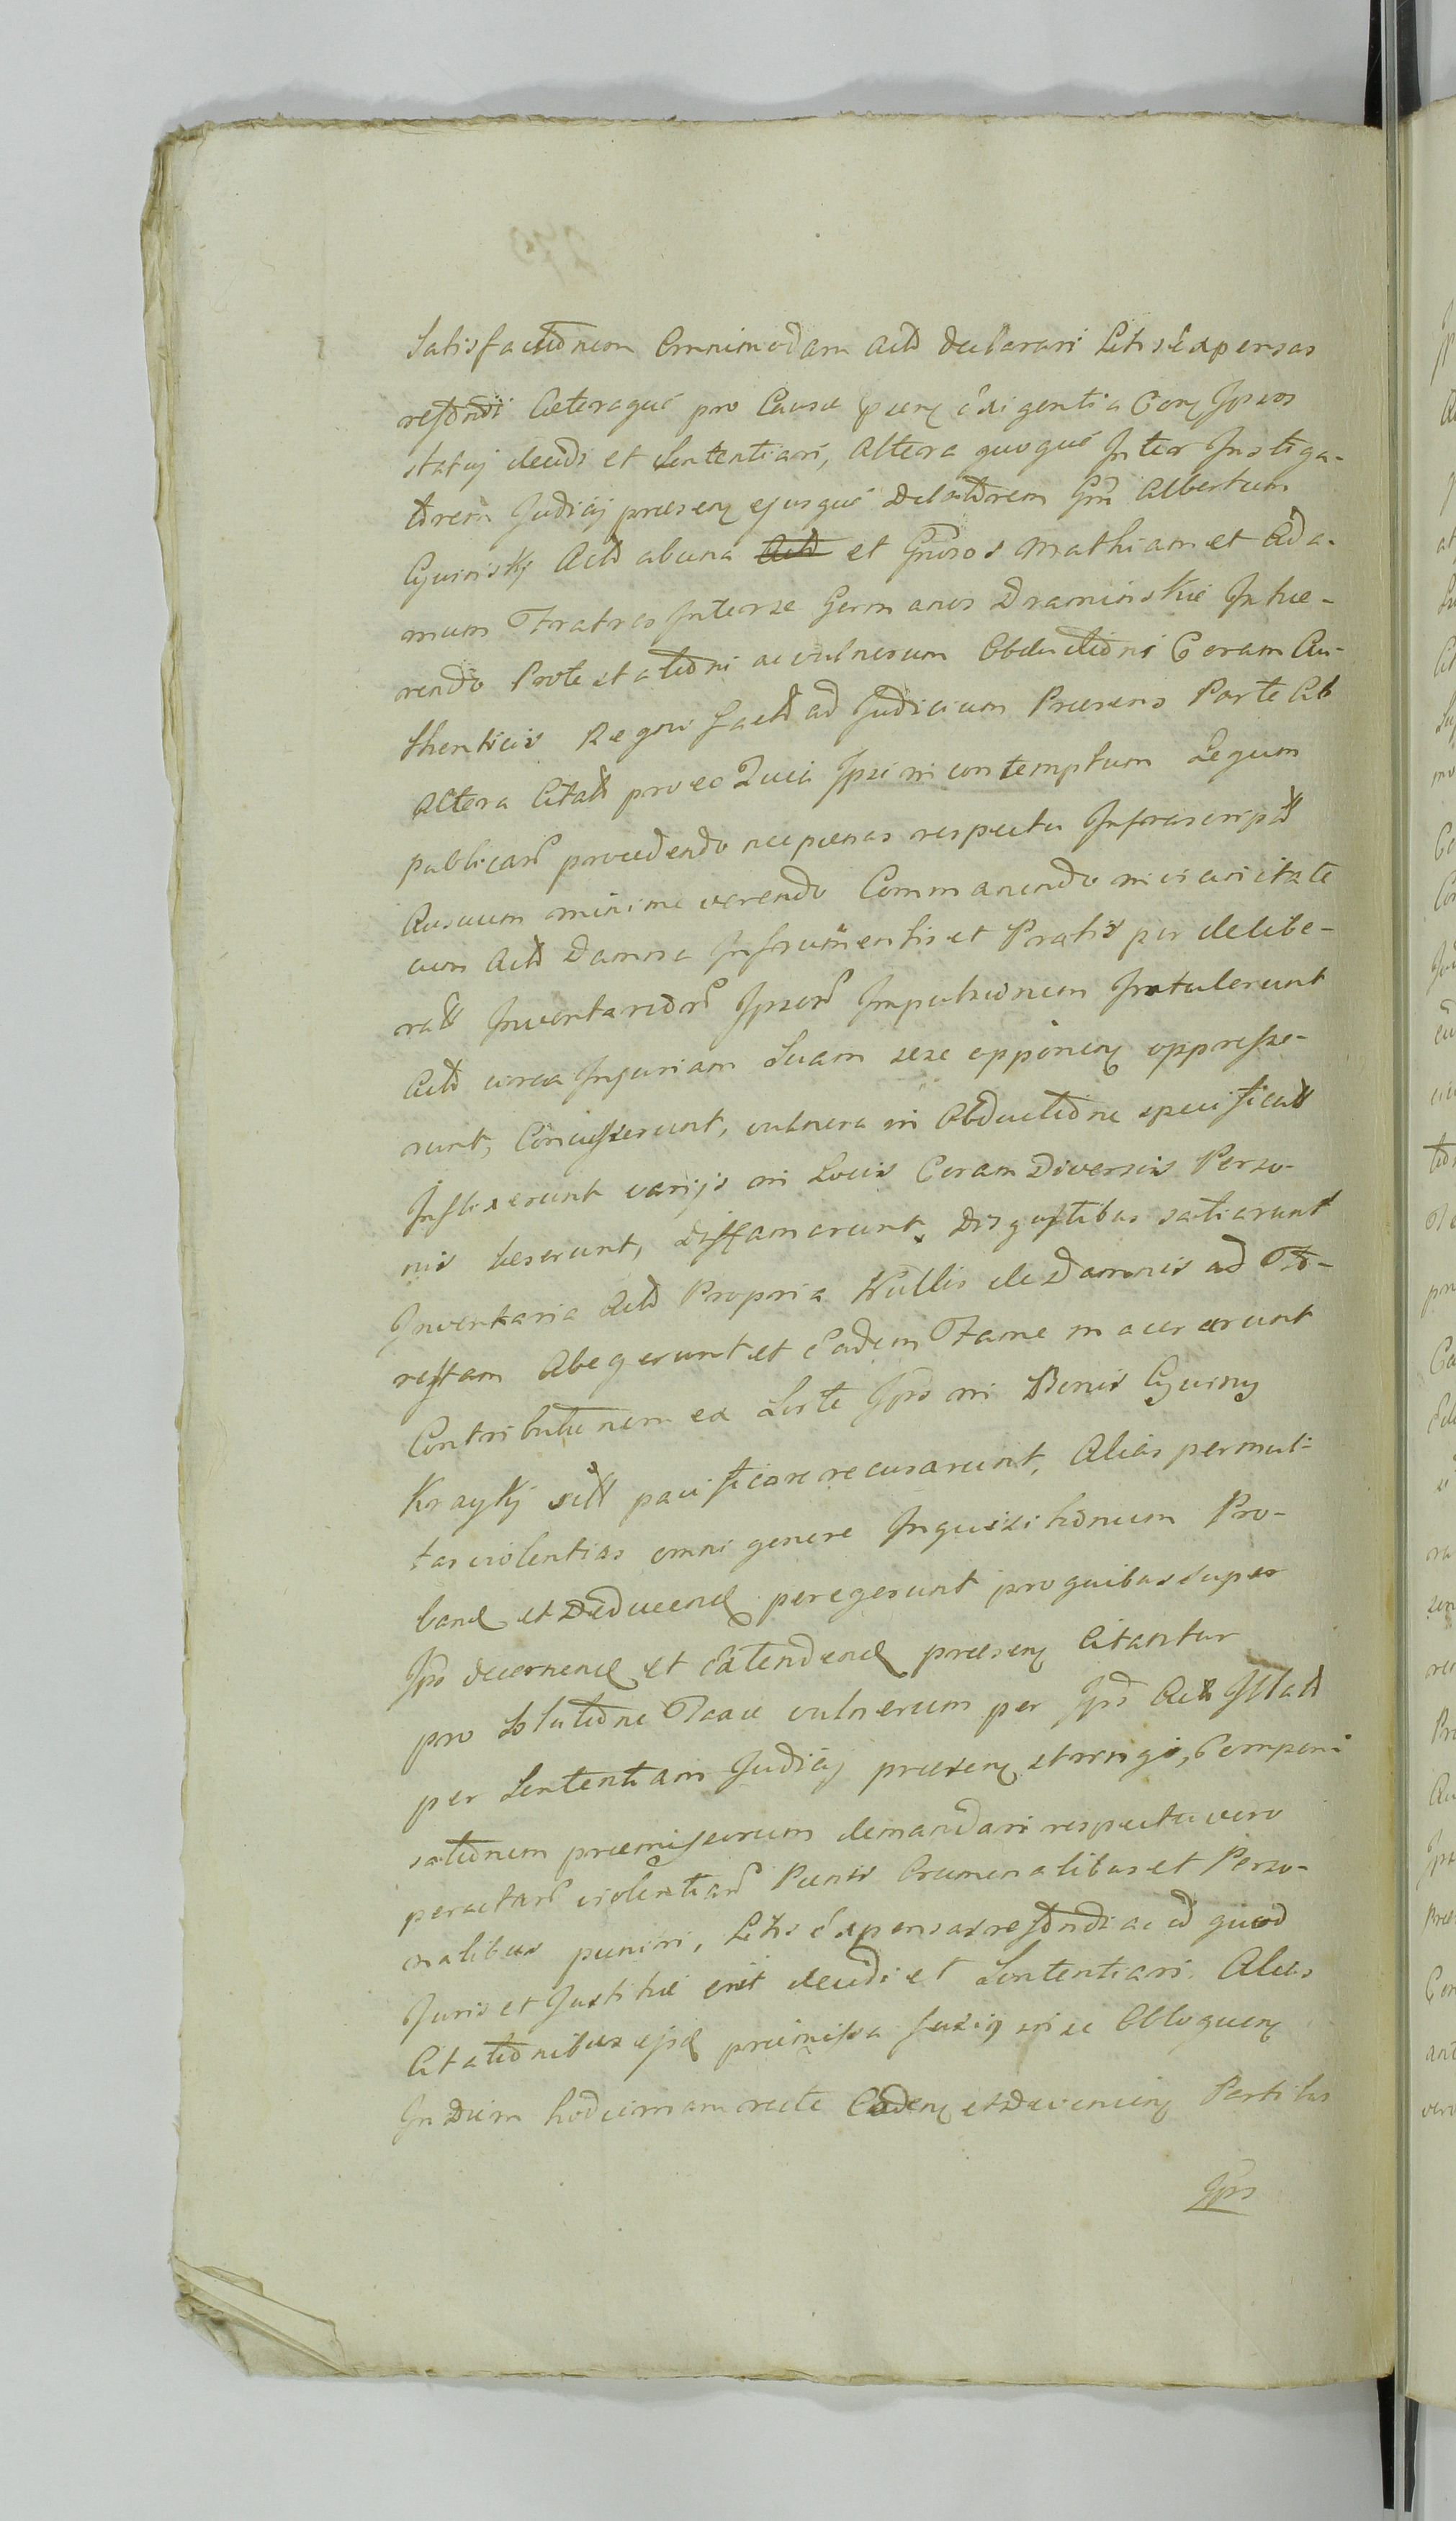 Satisfactionem Omnimodam Actō declarari Litis Expensas
refōndi Cæteraque pro Causæ præn̄ exigentia Cory Ipsos
statuj decidi et Sententiari, Altera quoque Inter Instiga-
torem Judicij præsen̄ ejusque Delatorem Gn̄ Albertum
Cywinskj Actō ab una et Gn̄rosos Mathiam et Ada-
mum Fratres Inter se Germanos Draminskie Inhæ-
rendo Protestationi ac vulnerum Obductioni Coram Au-
thenticis Regni factō ad Judicium Præsens Parte Ab
altera Citatō pro eo Quia Ipsi in contemptum Legum
publicarū procedendo nec pœnas respectu Infrascriptō
Ausuum minime verendo Commanendo in vicinitate
cum Actō Damna In frumentis et Pratis per delibe-
ratō Inventariorū Ipsorū Impulsionem Intulerunt
Actō circa Injuriam Suam sese opponen̄ oppresse-
runt, Concusserunt, vulnera in Obductione specificatō
Inflixerunt varijs in Locis Coram Diversis Perso-
nis læserunt, diffamarunt, Disgustibus satiarunt
Inventaria Actō Propria Nullis de Damnis ad Fo-
restam Abegerunt et Eadem Fame macerarunt
Contributionem ex Sorte Ipsō in Bonis Cywiny
Krayki sitō pacificare recusarunt, Alias permul-
tas violentias omni genere Inquisitionum Pro-
band et Deducend peregerunt pro quibus super
Ipsō decernend et Extendend præsen̄ Citantur
pro Solutione Taxæ vulnerum per Ipsō Actō Illatō
per Sententiam Judicij præsen̄ stringi, Compen-
sationem præmissorum demandari respectu vero
peractarū violentiarū Pœnis Criminalibus et Perso-
nalibus puniri, Litis Expensas refōndi ac id quod
Juris et Justitiæ erit decidi et Sententiari. Alias
Citationibus ejsd præmissa fusiq in se Obloquen̄
In Diem hodiernam recte Caden̄ et Devenien̄ Partibus
Ipsō